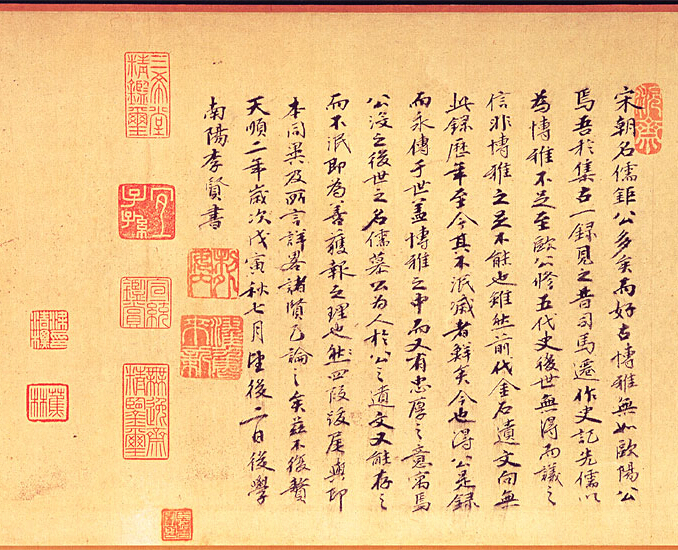 宋朝名儒鉅公多矣而好古博雅無如歐陽公
焉吾於集古一錄見之昔司馬遷作史記先儒以
為博雅不足至歐公修五代史後世無得而議之
信非博雅之至不能也雖然前代金石遺文向無
此錄歷年至今其不泯滅者鮮矣今也得公是錄
而永傳于世蓋博雅之中而又有忠厚之意寓焉
公沒之後世之名儒慕公為人於公之遺文又能存之
而不泯即為善獲報之理也然四段跋尾與印
本同異及所言詳畧諸賢已論之矣茲不復贅
天順二年歲次戊寅秋七月望後二日後學
南陽李賢書
三希堂
精鑑璽
宜
子孫
宣統
鑑賞
無逸齋
精鑒璽
蕉
林